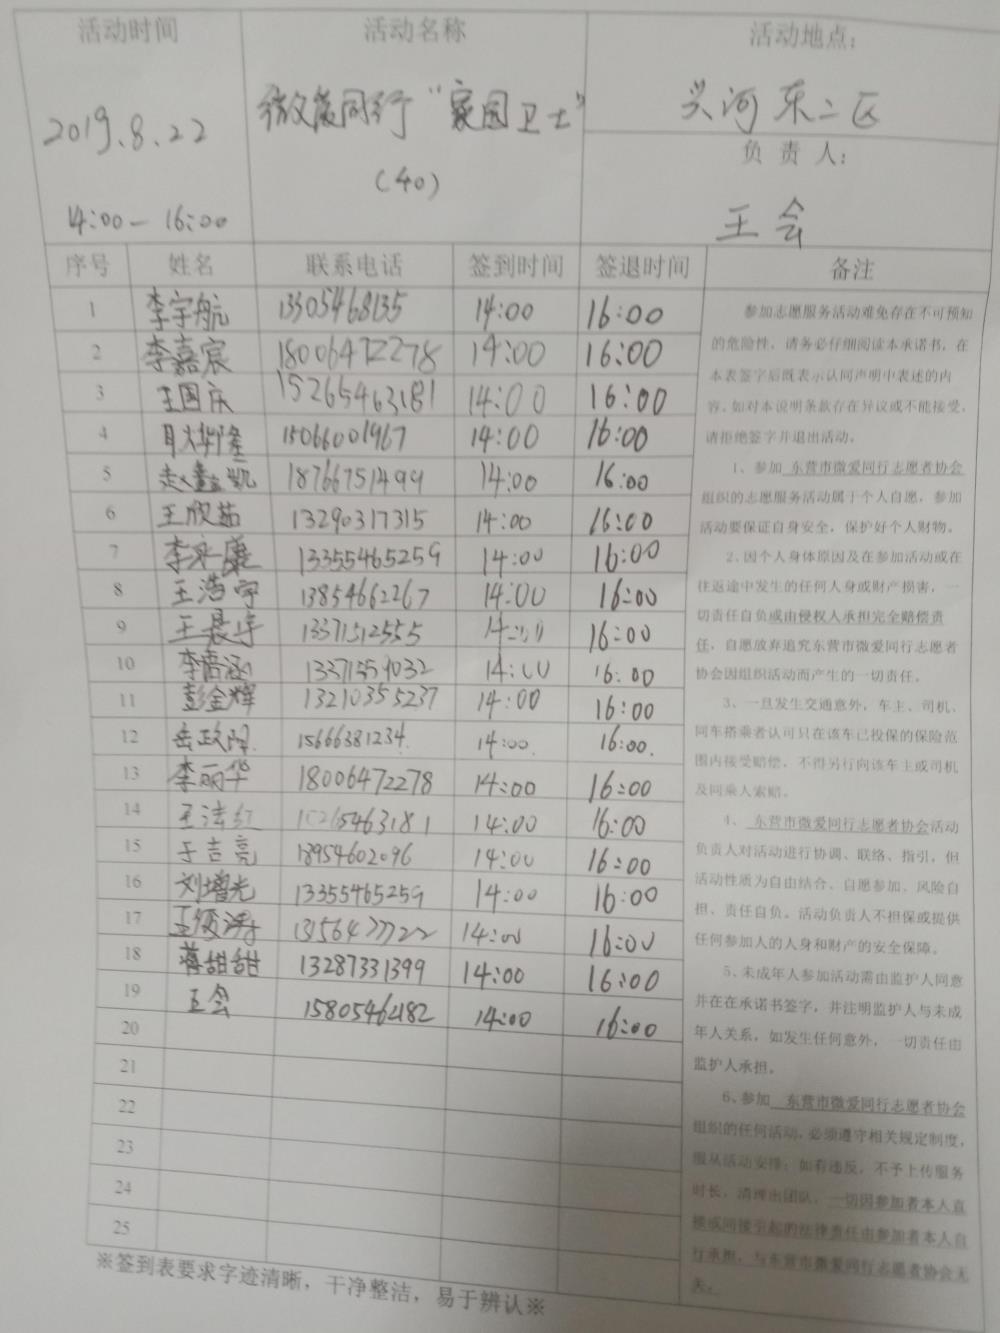 活动时间 活动名称 活动地点:
2019.8.22 微爱同行“家园卫士” 兴河东二区
(40) 负责人:
14:00-16:00 王会
序号 姓名 联系电话 签到时间 签退时间 备注
1 李宇航 13305468135 14:00 16:00
2 李嘉宸 18006472278 14:00 16:00
3 王国庆 15265463181 14:00 16:00
4 15066001967 14:00 16:00
5 赵鑫凯 18766751499 14:00 16:00
6 王欣茹 13290317315 14:00 16:00
7 李永康 13355465259 14:00 16:00
8 王浩宇 13854662267 14:00 16:00
9 13371512555 14:00 16:00
10 李雨涵 13371559032 14:00 16:00
11 彭金辉 13210355237 14:00 16:00
12 岳政阳 15666381234 14:00. 16:00.
13 李丽华 18006472278 14:00 16:00
14 14:00 16:00
15 于吉亮 18954602096 14:00 16:00
16 刘增光 13355465259 14:00 16:00
17 13156477722 14:00 16:00
18 蒋甜甜 13287331399 14:00 16:00
19 王会 15805462182 14:00 16:00
20
21
22
23
24
25
参加志愿服务活动难免存在不可预知
的危险性,请务必仔细阅读本承诺书,在
本表签字后既表示认同声明中表述的内
容。如对本说明条款存在异议或不能接受,
请拒绝签字并退出活动。
1、参加 东营市微爱同行志愿者协会
组织的志愿服务活动属于个人自愿,参加
活动要保证自身安全,保护好个人财物。
2、因个人身体原因及在参加活动或在
往返途中发生的任何人身或财产损害,一
切责任自负或由侵权人承担完全赔偿责
任,自愿放弃追究东营市微爱同行志愿者
协会因组织活动而产生的一切责任。
3、一旦发生交通意外,车主、司机、
同车搭乘者认可只在该车已投保的保险范
围内接受赔偿,不得另行向该车主或司机
及同乘人索赔。
4、 东营市微爱同行志愿者协会活动
负责人对活动进行协调、联络、指引,但
活动性质为自由结合、自愿参加、风险自
担、责任自负。活动负责人不担保或提供
任何参加人的人身和财产的安全保障。
5、未成年人参加活动需由监护人同意
并在在承诺书签字,并注明监护人与未成
年人关系,如发生任何意外,一切责任由
监护人承担。
6、参加 东营市微爱同行志愿者协会
组织的任何活动,必须遵守相关规定制度,
服从活动安排;如有违反,不予上传服务
时长,清理出团队。一切因参加者本人直
接或间接引起的法律责任由参加者本人自
行承担,与东营市微爱同行志愿者协会无
关。
※签到表要求字迹清晰,干净整洁,易于辨认※